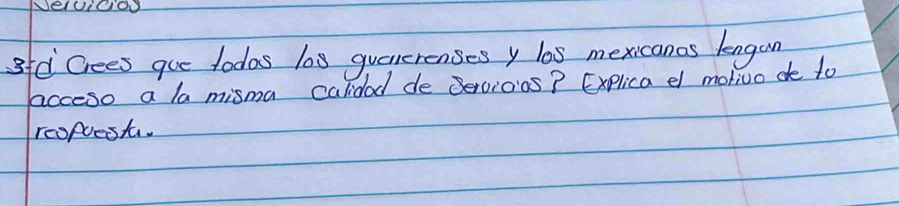 Servicios
3-¿Crees que todos los guerrerenses y los mexicanos tengan
acceso a la misma calidad de servicios? Explica el motivo de tu
respuesta.